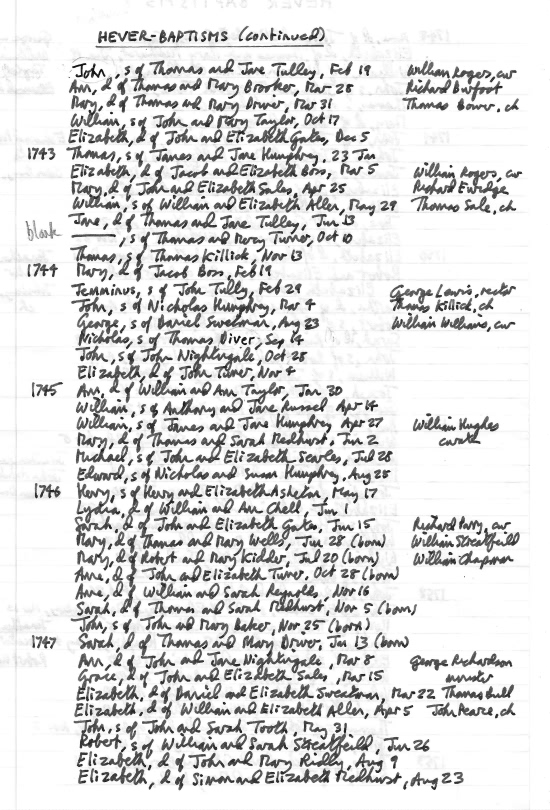 HEVER-BAPTISMS (continued)
John, s of Thomas and Jane Tulley, Feb 19 William Rogers, cur
Ann, d of Thomas and Mary Brooker, Mar 28 Richard Burfoot
Mary, d of Thomas and Mary Driver, Mar 31 Thomas Bower, ch
William, s of John and Mary Taylor, Oct 17
Elizabeth, d of John and Elizabeth Gates, Dec 5
1743 Thomas, s of James and Jane Humphry, 23 Jan
Elizabeth, d of Jacob and Elizabeth Boss, Mar 5 William Rogers, cur
Mary, d of John and Elizabeth Sales, Apr 25 Richard Ewridge
William, s of William and Elizabeth Allen, May 29 Thomas Sale, ch
Jane, d of Thomas and Jane Tulley, Jun 13
blank ———, s of Thomas and Mary Turner, Oct 10
Thomas, s of Thomas Killick, Nov 13
1744 Mary, d of Jacob Boss, Feb 19
Jemminus, s of John Tully, Feb 29 George Lewis, rector
John, s of Nicholas Humphry, Mar 4 Thomas Killick, ch
George, s of Daniel Sweatman, Aug 23 William Williams, cur
Nicholas, s of Thomas Diver, Sep 14
John, s of John Nightingale, Oct 28
Elizabeth, d of John Turner, Nov 4
1745 Ann, d of William and Ann Taylor, Jan 30
William, s of Anthony and Jane Russel Apr 14
William, s of James and Jane Humphry Apr 27 William Hughes
Mary, d of Thomas and Sarah Medhurst, Jun 2 curate
Michael, s of John and Elizabeth Searles, Jul 28
Edward, s of Nicholas and Susan Humphry, Aug 25
1746 Henry, s of Henry and Elizabeth Ashetor, May 17
Lydia, d of William and Ann Chell, Jun 1
Sarah, d of John and Elizabeth Gates, Jun 15 Richard Parry, cur
Mary, d of Thomas and Mary Wells, Jun 28 (born) William Streatfeild
Mary, d of Robert and Mary Kidder, Jul 20 (born) William Chapman
Anne, d of John and Elizabeth Turner, Oct 28 (born)
Anne, d of William and Sarah Reynolds, Nov 16
Sarah, d of Thomas and Sarah Medhurst, Nov 5 (born)
John, s of John and Mary Baker, Nov 25 (born)
1747 Sarah, d of Thomas and Mary Driver, Jan 13 (born)
Ann, d of John and Jane Nightingale, Mar 8 George Richardson
Grace, d of John and Elizabeth Sales, Mar 15 minister
Elizabeth, d of Daniel and Elizabeth Sweatman, Mar 22 Thomas Bull
Elizabeth, d of William and Elizabeth Allen, Apr 5 John Pearce, ch
John, s of John and Sarah Tooth, May 31
Robert, s of William and Sarah Streatfeild, Jun 26
Elizabeth, d of John and Mary Ridly, Aug 9
Elizabeth, d of Simon and Elizabeth Medhurst, Aug 23